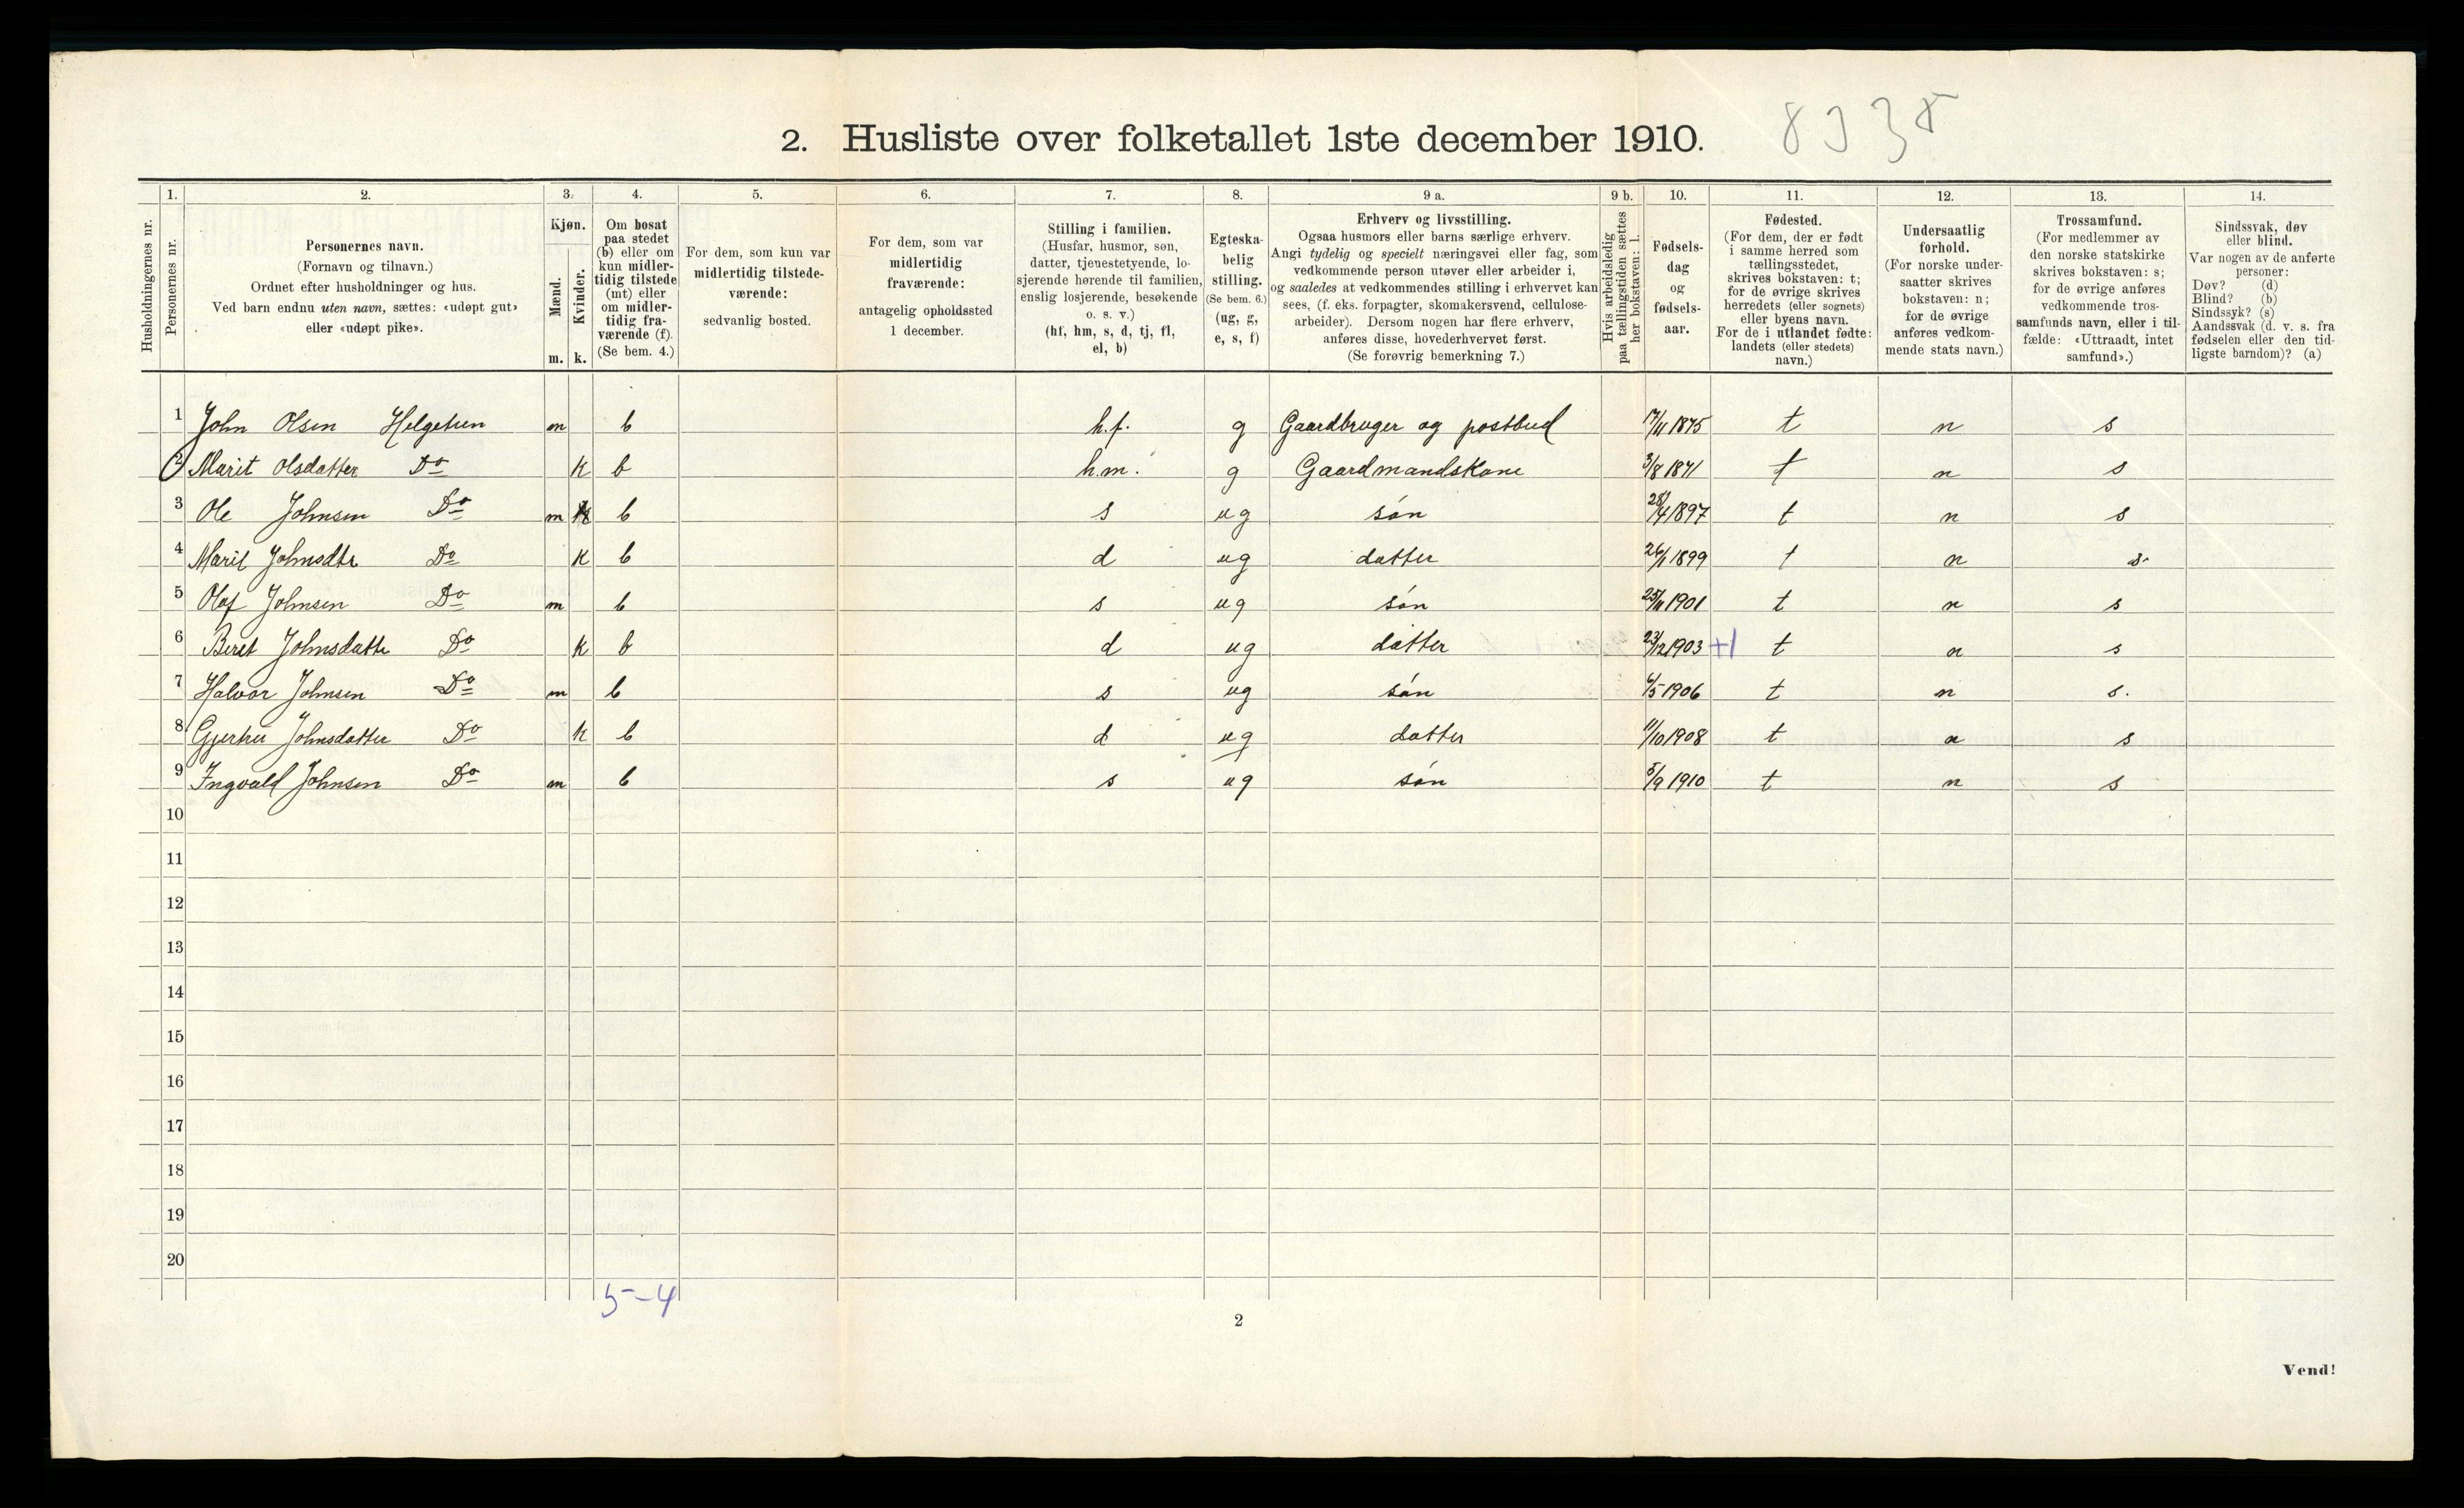 8335
2. Husliste over folketallet 1ste december 1910.
Husholdningernes nr.
1.
Personernes nr.
2.
Personernes navn.
(Fornavn og tilnavn.)
Ordnet efter husholdninger og hus.
Ved barn endnu uten navn, sættes: «udøpt gut»
eller «udøpt pike».
3.
Kjøn.
Mænd.
Kvinder.
m. k.
4.
Om bosat
paa stedet
(b) eller om
kun midler-
tidig tilstede
(mt) eller
om midler-
tidig fra-
værende (f).
(Se bem. 4.)
5.
For dem, som kun var
midlertidig tilstede-
værende:
sedvanlig bosted.
6.
For dem, som var
midlertidig
fraværende:
antagelig opholdssted
1 december.
7.
Stilling i familien.
(Husfar, husmor, søn,
datter, tjenestetyende, lo-
sjerende hørende til familien,
enslig losjerende, besøkende
o. s. v.)
(hf, hm, s, d, tj, fl,
el, b)
8.
Egteska-
belig
stilling.
(Se bem. 6.)
(ug, g,
e, s, f)
9 a.
Erhverv og livsstilling.
Ogsaa husmors eller barns særlige erhverv.
Angi tydelig og specielt næringsvei eller fag, som
vedkommende person utøver eller arbeider i,
og saaledes at vedkommendes stilling i erhvervet kan
sees, (f. eks. forpagter, skomakersvend, cellulose-
arbeider). Dersom nogen har flere erhverv,
anføres disse, hovederhvervet først.
(Se forøvrig bemerkning 7.)
9 b.
Hvis arbeidsledig
paa tællingstiden sættes
her bokstaven: l.
10.
Fødsels-
dag
og
fødsels-
aar.
11.
Fødested.
(For dem, der er født
i samme herred som
tællingsstedet,
skrives bokstaven: t;
for de øvrige skrives
herredets (eller sognets)
eller byens navn.
For de i utlandet fødte:
landets (eller stedets)
navn.)
12.
Undersaatlig
forhold.
(For norske under-
saatter skrives
bokstaven: n;
for de øvrige
anføres vedkom-
mende stats navn.)
13.
Trossamfund.
(For medlemmer av
den norske statskirke
skrives bokstaven: s;
for de øvrige anføres
vedkommende tros-
samfunds navn, eller i til-
fælde: «Uttraadt, intet
samfund».)
14.
Sindssvak, døv
eller blind.
Var nogen av de anførte
personer:
Døv? (d)
Blind? (b)
Sindssyk? (s)
Aandssvak (d. v. s. fra
fødselen eller den tid-
ligste barndom)? (a)
1 John Olsen Helgetun m b h.f. g Gaardbruger og postbud 17/11 1875 t n s
2 Marit Olsdatter Do k b h.m. g Gaardmandskone 3/8 1871 t n s
3 Ole Johnsen Do m b s ug søn 28/4 1897 t n s
4 Marit Johnsdtr Do k b d ug datter 26/1 1899 t n s.
5 Olaf Johnsen Do m b s ug søn 25/11 1901 t n s
6 Beret Johnsdatter Do k b d ug datter 23/12 1903 +1 t n s
7 Halvor Johnsen Do m b s ug søn 6/5 1906 t n s.
8 Johnsdatter Do k b d ug datter 11/10 1908 t n s
9 Ingvald Johnsen Do m b s ug søn 5/9 1910 t n s
10
11
12
13
14
15
16
17
18
19
20
5-4
2
Vend!